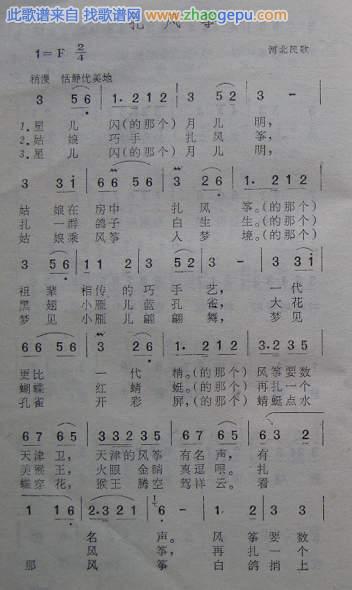 此歌谱来自 找歌谱网 www.zhaogepu.com
扎 风 筝
1=F 2/4
河北民歌
稍慢 恬静优美地
3 56 | 1. 212 | 3 52 | 3 - |
1.星 儿 闪(的那个)月 儿 明,
2.姑 娘 巧手 扎 风 筝,
3.星 儿 闪(的那个)月 儿 明,
3 33i | 66 56 | 3 26 | 1. 212 |
姑 娘在 房中 扎 风 筝。(的那个)
扎 一群 鸽子 白 生 生。(的那个)
姑 娘乘 风筝 入 梦 境。(的那个)
3 56 | 11 12 | 3 52 | 3 - | 3 33i |
祖 辈 相传的 巧 手 艺, 一代
黑 翅 小雁儿 蓝 孔 雀, 大花
梦 见 小雁儿 翩 翩 舞, 梦见
66 56 | 3 26 | 1. 212 | 3.235 |
更比 一 代 精。(的那个) 风筝要数
蝴蝶 红 蜻 蜓。(的那个) 再扎一个
孔雀 开 彩 屏,(的那个) 蜻蜓点水
67 65 | 33235 | 67 65 | 3 32 |
天津 卫, 天津的风筝 有名 声, 有
美猴 王, 火眼 金睛 真逗 哏。 扎
蝶穿 花, 猴王 腾空 驾祥 云。 看
1 16 | 2.321 | 6 - | 1. 212 |
名 声。 风 筝 要 数
风 筝, 再 扎 一 个
那 风 筝 白 鸽 捎 上